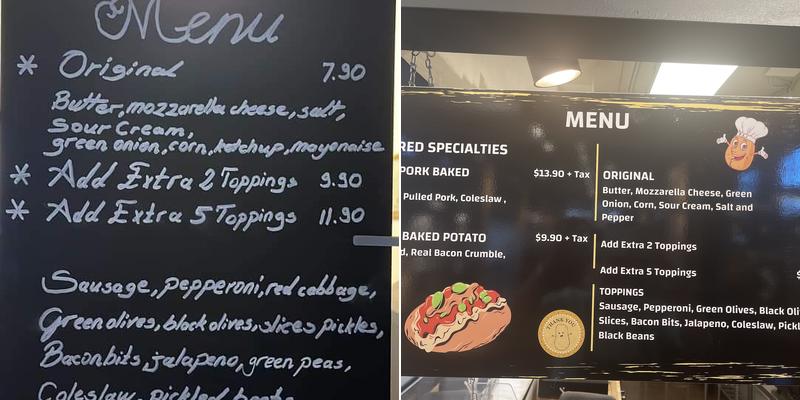 Menu
* Original 7.90
Butter, mozzarella cheese, salt,
Sour Cream,
green onion, corn, ketchup, mayonaise
* Add Extra 2 Toppings 9.90
* Add Extra 5 Toppings 11.90
Sausage, pepperoni, red cabbage,
Green olives, black olives, slices pickles,
Bacon bits, jalapeno, green peas,
Coleslaw, pickled beets
MENU
RED SPECIALTIES
PORK BAKED $13.90 + Tax
Pulled Pork, Coleslaw,
BAKED POTATO $9.90 + Tax
d, Real Bacon Crumble,
THANK YOU
ORIGINAL
Butter, Mozzarella Cheese, Green
Onion, Corn, Sour Cream, Salt and
Pepper
Add Extra 2 Toppings
Add Extra 5 Toppings
TOPPINGS
Sausage, Pepperoni, Green Olives, Black Oli
Slices, Bacon Bits, Jalapeno, Coleslaw, Pickl
Black Beans